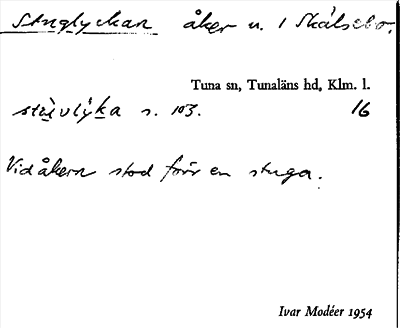 Stuglyckan åker n. 1 Skälsebo.
Tuna sn, Tunaläns hd, Klm. l.
stùvlỳka s. 103. 16
Vid åkern stod förr en stuga.
Ivar Modéer 1954